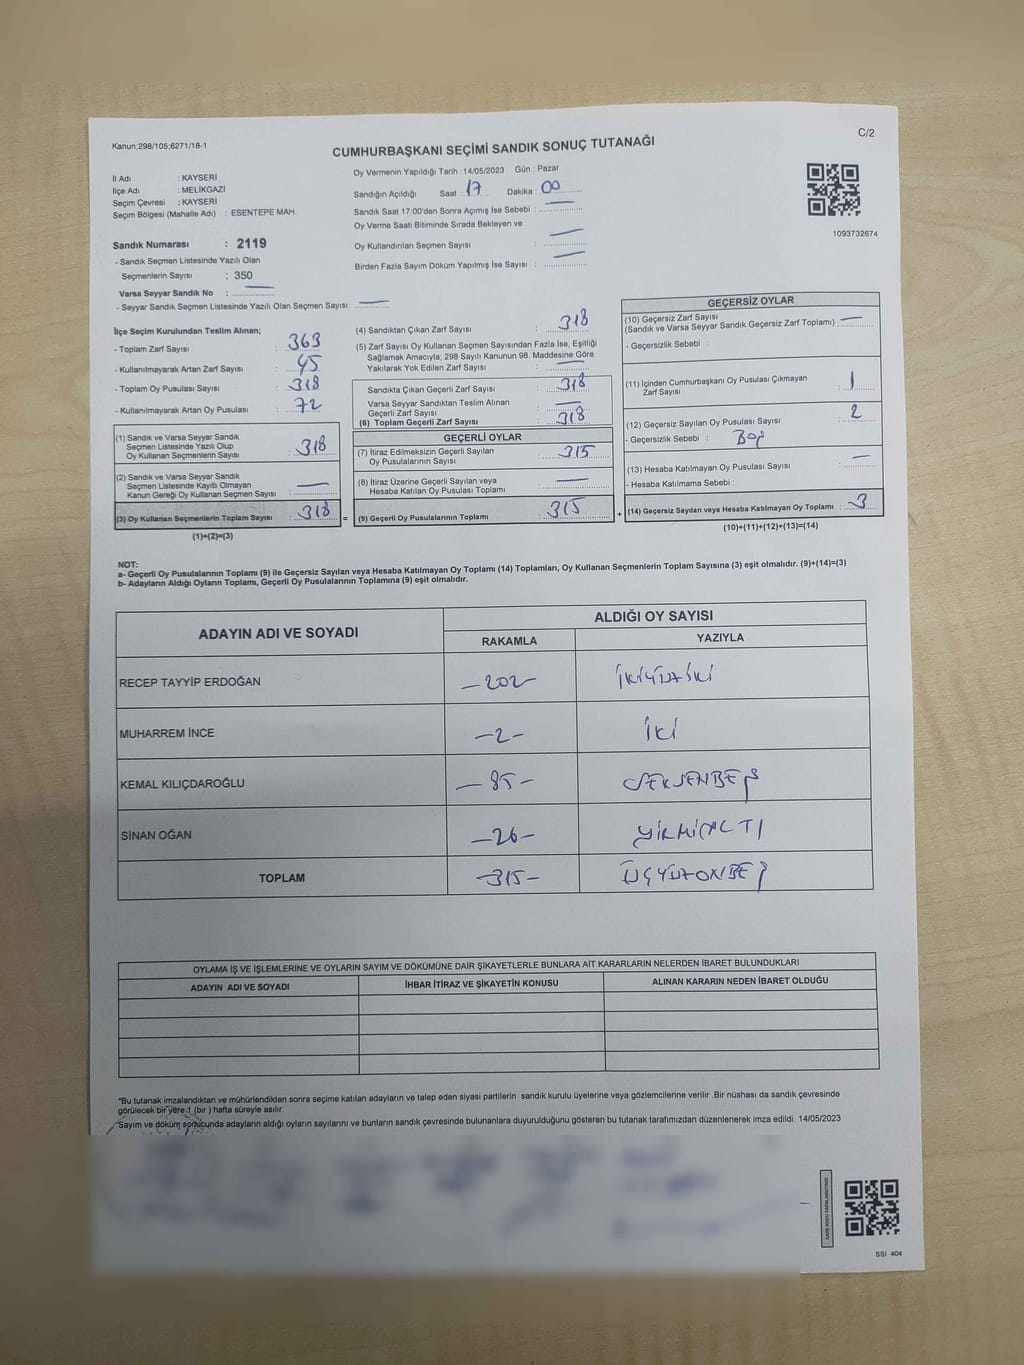 Kanun;298/105;6271/18-1
C/2
CUMHURBAŞKANI SEÇİMİ SANDIK SONUÇ TUTANAĞI
İl Adı : KAYSERİ
İlçe Adı : MELİKGAZİ
Seçim Çevresi : KAYSERİ
Seçim Bölgesi (Mahalle Adı) : ESENTEPE MAH.
Sandık Numarası : 2119
- Sandık Seçmen Listesinde Yazılı Olan
Seçmenlerin Sayısı : 350
Varsa Seyyar Sandık No : —
- Seyyar Sandık Seçmen Listesinde Yazılı Olan Seçmen Sayısı: —
Oy Vermenin Yapıldığı Tarih :14/05/2023 Gün : Pazar
Sandığın Açıldığı Saat : 17 Dakika : 00
Sandık Saat 17:00'den Sonra Açımış İse Sebebi : —
Oy Verme Saati Bitiminde Sırada Bekleyen ve
Oy Kullandırılan Seçmen Sayısı : —
Birden Fazla Sayım Döküm Yapılmış İse Sayısı : —
1093732674
İlçe Seçim Kurulundan Teslim Alınan;
- Toplam Zarf Sayısı : 363
- Kullanılmayarak Artan Zarf Sayısı : 45
- Toplam Oy Pusulası Sayısı : 318
- Kullanılmayarak Artan Oy Pusulası : 72
(1) Sandık ve Varsa Seyyar Sandık
Seçmen Listesinde Yazılı Olup
Oy Kullanan Seçmenlerin Sayısı : 318
(2) Sandık ve Varsa Seyyar Sandık
Seçmen Listesinde Kayıtlı Olmayan
Kanun Gereği Oy Kullanan Seçmen Sayısı : —
(3) Oy Kullanan Seçmenlerin Toplam Sayısı : 318 =
(1)+(2)=(3)
(4) Sandıktan Çıkan Zarf Sayısı : 318
(5) Zarf Sayısı Oy Kullanan Seçmen Sayısından Fazla İse, Eşitliği
Sağlamak Amacıyla; 298 Sayılı Kanunun 98. Maddesine Göre
Yakılarak Yok Edilen Zarf Sayısı : —
Sandıkta Çıkan Geçerli Zarf Sayısı : 318
Varsa Seyyar Sandıktan Teslim Alınan
Geçerli Zarf Sayısı : —
(6) Toplam Geçerli Zarf Sayısı : 318
GEÇERLİ OYLAR
(7) İtiraz Edilmeksizin Geçerli Sayılan
Oy Pusulalarının Sayısı : 315
(8) İtiraz Üzerine Geçerli Sayılan veya
Hesaba Katılan Oy Pusulası Toplamı : —
(9) Geçerli Oy Pusulalarının Toplamı : 315 +
GEÇERSİZ OYLAR
(10) Geçersiz Zarf Sayısı
(Sandık ve Varsa Seyyar Sandık Geçersiz Zarf Toplamı) : —
- Geçersizlik Sebebi :
(11) İçinden Cumhurbaşkanı Oy Pusulası Çıkmayan
Zarf Sayısı : 1
(12) Geçersiz Sayılan Oy Pusulası Sayısı : 2
- Geçersizlik Sebebi : Boş
(13) Hesaba Katılmayan Oy Pusulası Sayısı : —
- Hesaba Katılmama Sebebi :
(14) Geçersiz Sayılan veya Hesaba Katılmayan Oy Toplamı : 3
(10)+(11)+(12)+(13)=(14)
NOT:
a- Geçerli Oy Pusulalarının Toplamı (9) ile Geçersiz Sayılan veya Hesaba Katılmayan Oy Toplamı (14) Toplamları, Oy Kullanan Seçmenlerin Toplam Sayısına (3) eşit olmalıdır. (9)+(14)=(3)
b- Adayların Aldığı Oyların Toplamı, Geçerli Oy Pusulalarının Toplamına (9) eşit olmalıdır.
ADAYIN ADI VE SOYADI
ALDIĞI OY SAYISI
RAKAMLA YAZIYLA
RECEP TAYYİP ERDOĞAN —202— İKİYÜZİKİ
MUHARREM İNCE —2— İKİ
KEMAL KILIÇDAROĞLU —85— SEKSENBEŞ
SİNAN OĞAN —26— YİRMİALTI
TOPLAM —315— ÜÇYÜZONBEŞ
OYLAMA İŞ VE İŞLEMLERİNE VE OYLARIN SAYIM VE DÖKÜMÜNE DAİR ŞİKAYETLERLE BUNLARA AİT KARARLARIN NELERDEN İBARET BULUNDUKLARI
ADAYIN ADI VE SOYADI İHBAR İTİRAZ VE ŞİKAYETİN KONUSU ALINAN KARARIN NEDEN İBARET OLDUĞU
*Bu tutanak imzalandıktan ve mühürlendikten sonra seçime katılan adayların ve talep eden siyasi partilerin sandık kurulu üyelerine veya gözlemcilerine verilir .Bir nüshası da sandık çevresinde
görülecek bir yere 1 (bir ) hafta süreyle asılır.
*Sayım ve döküm sonucunda adayların aldığı oyların sayılarını ve bunların sandık çevresinde bulunanlara duyurulduğunu gösteren bu tutanak tarafımızdan düzenlenerek imza edildi. 14/05/2023
SSI 404